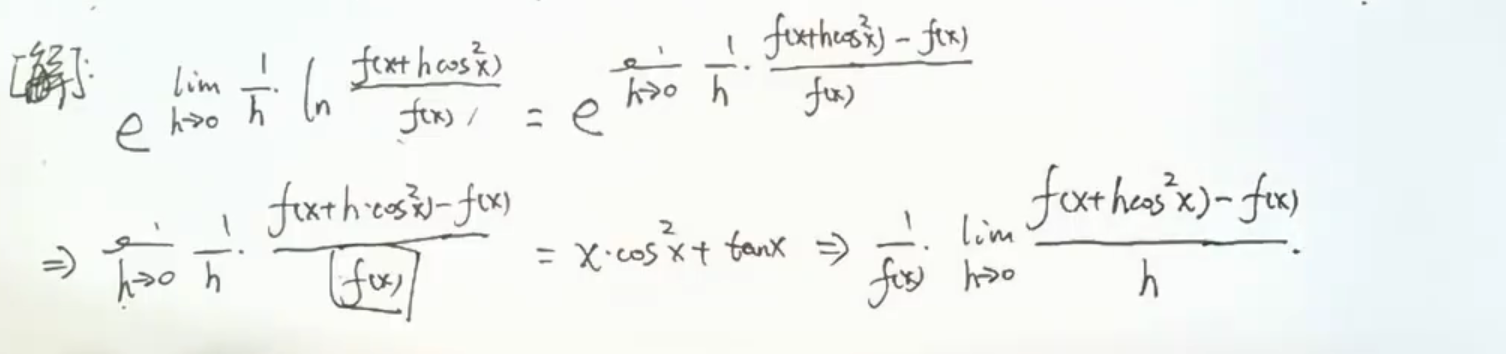 [解]: e^{lim_{h→0} 1/h · ln f(x+hcos²x)/f(x)} = e^{lim_{h→0} 1/h · (f(x+hcos²x) - f(x))/f(x)}
⇒ lim_{h→0} 1/h · (f(x+h·cos²x) - f(x))/f(x) = x·cos²x + tanx ⇒ 1/f(x) · lim_{h→0} (f(x+hcos²x) - f(x))/h .